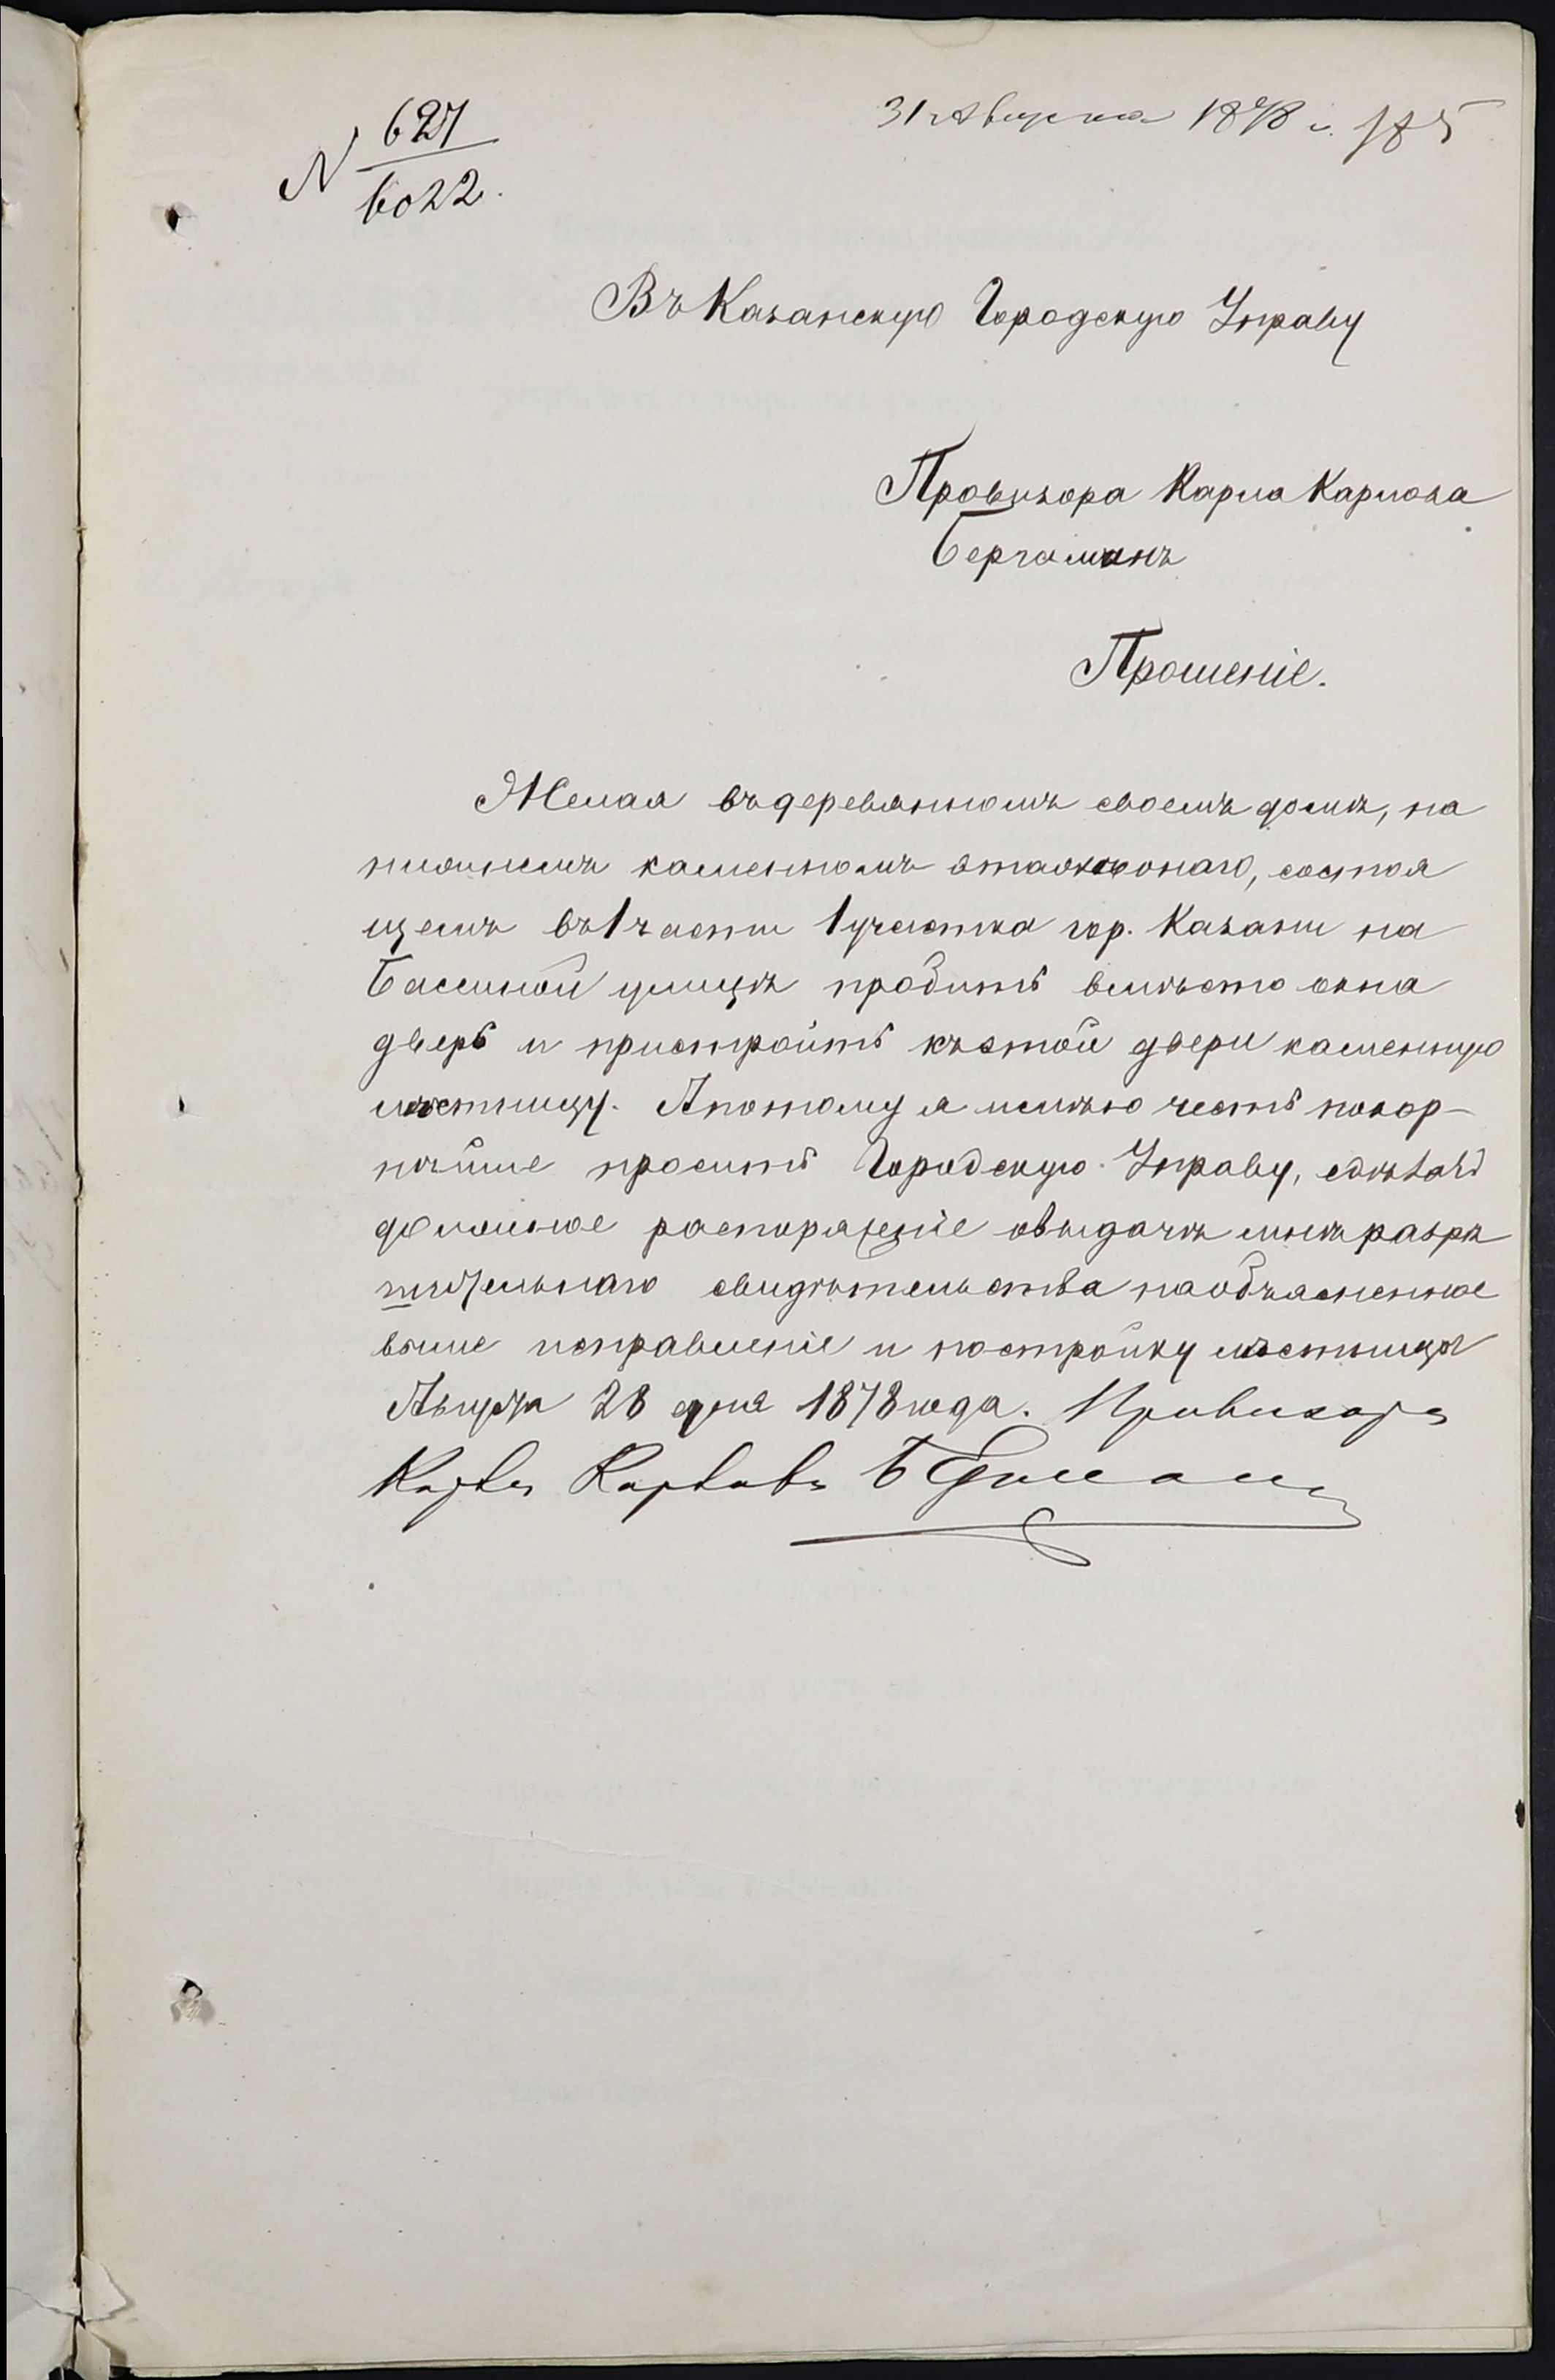 31 Августа 1878 г. 185
N 627
6022.
Въ Казанскую Городскую Управу
Провизора Карла Карлова
Бергманъ
Прошеніе.
Желая въ деревянномъ своемъ домѣ, на
нижнемъ каменномъ этажѣ онаго, состоя
щемъ въ 1 части 1 участка гор. Казани на
улицѣ пробить вмѣсто окна
дверь и пристроить къ этой двери каменную
лѣстницу. А потому я имѣю честь покор-
нѣйше просить Городскую Управу, сдѣлать
должное распоряженіе о выдачѣ мнѣ разрѣ
шительнаго свидѣтельства на объясненное
выше исправленіе и постройку лѣстницы
Августа 28 дня 1878 года. Провизоръ
Карлъ Карловъ Бергманъ